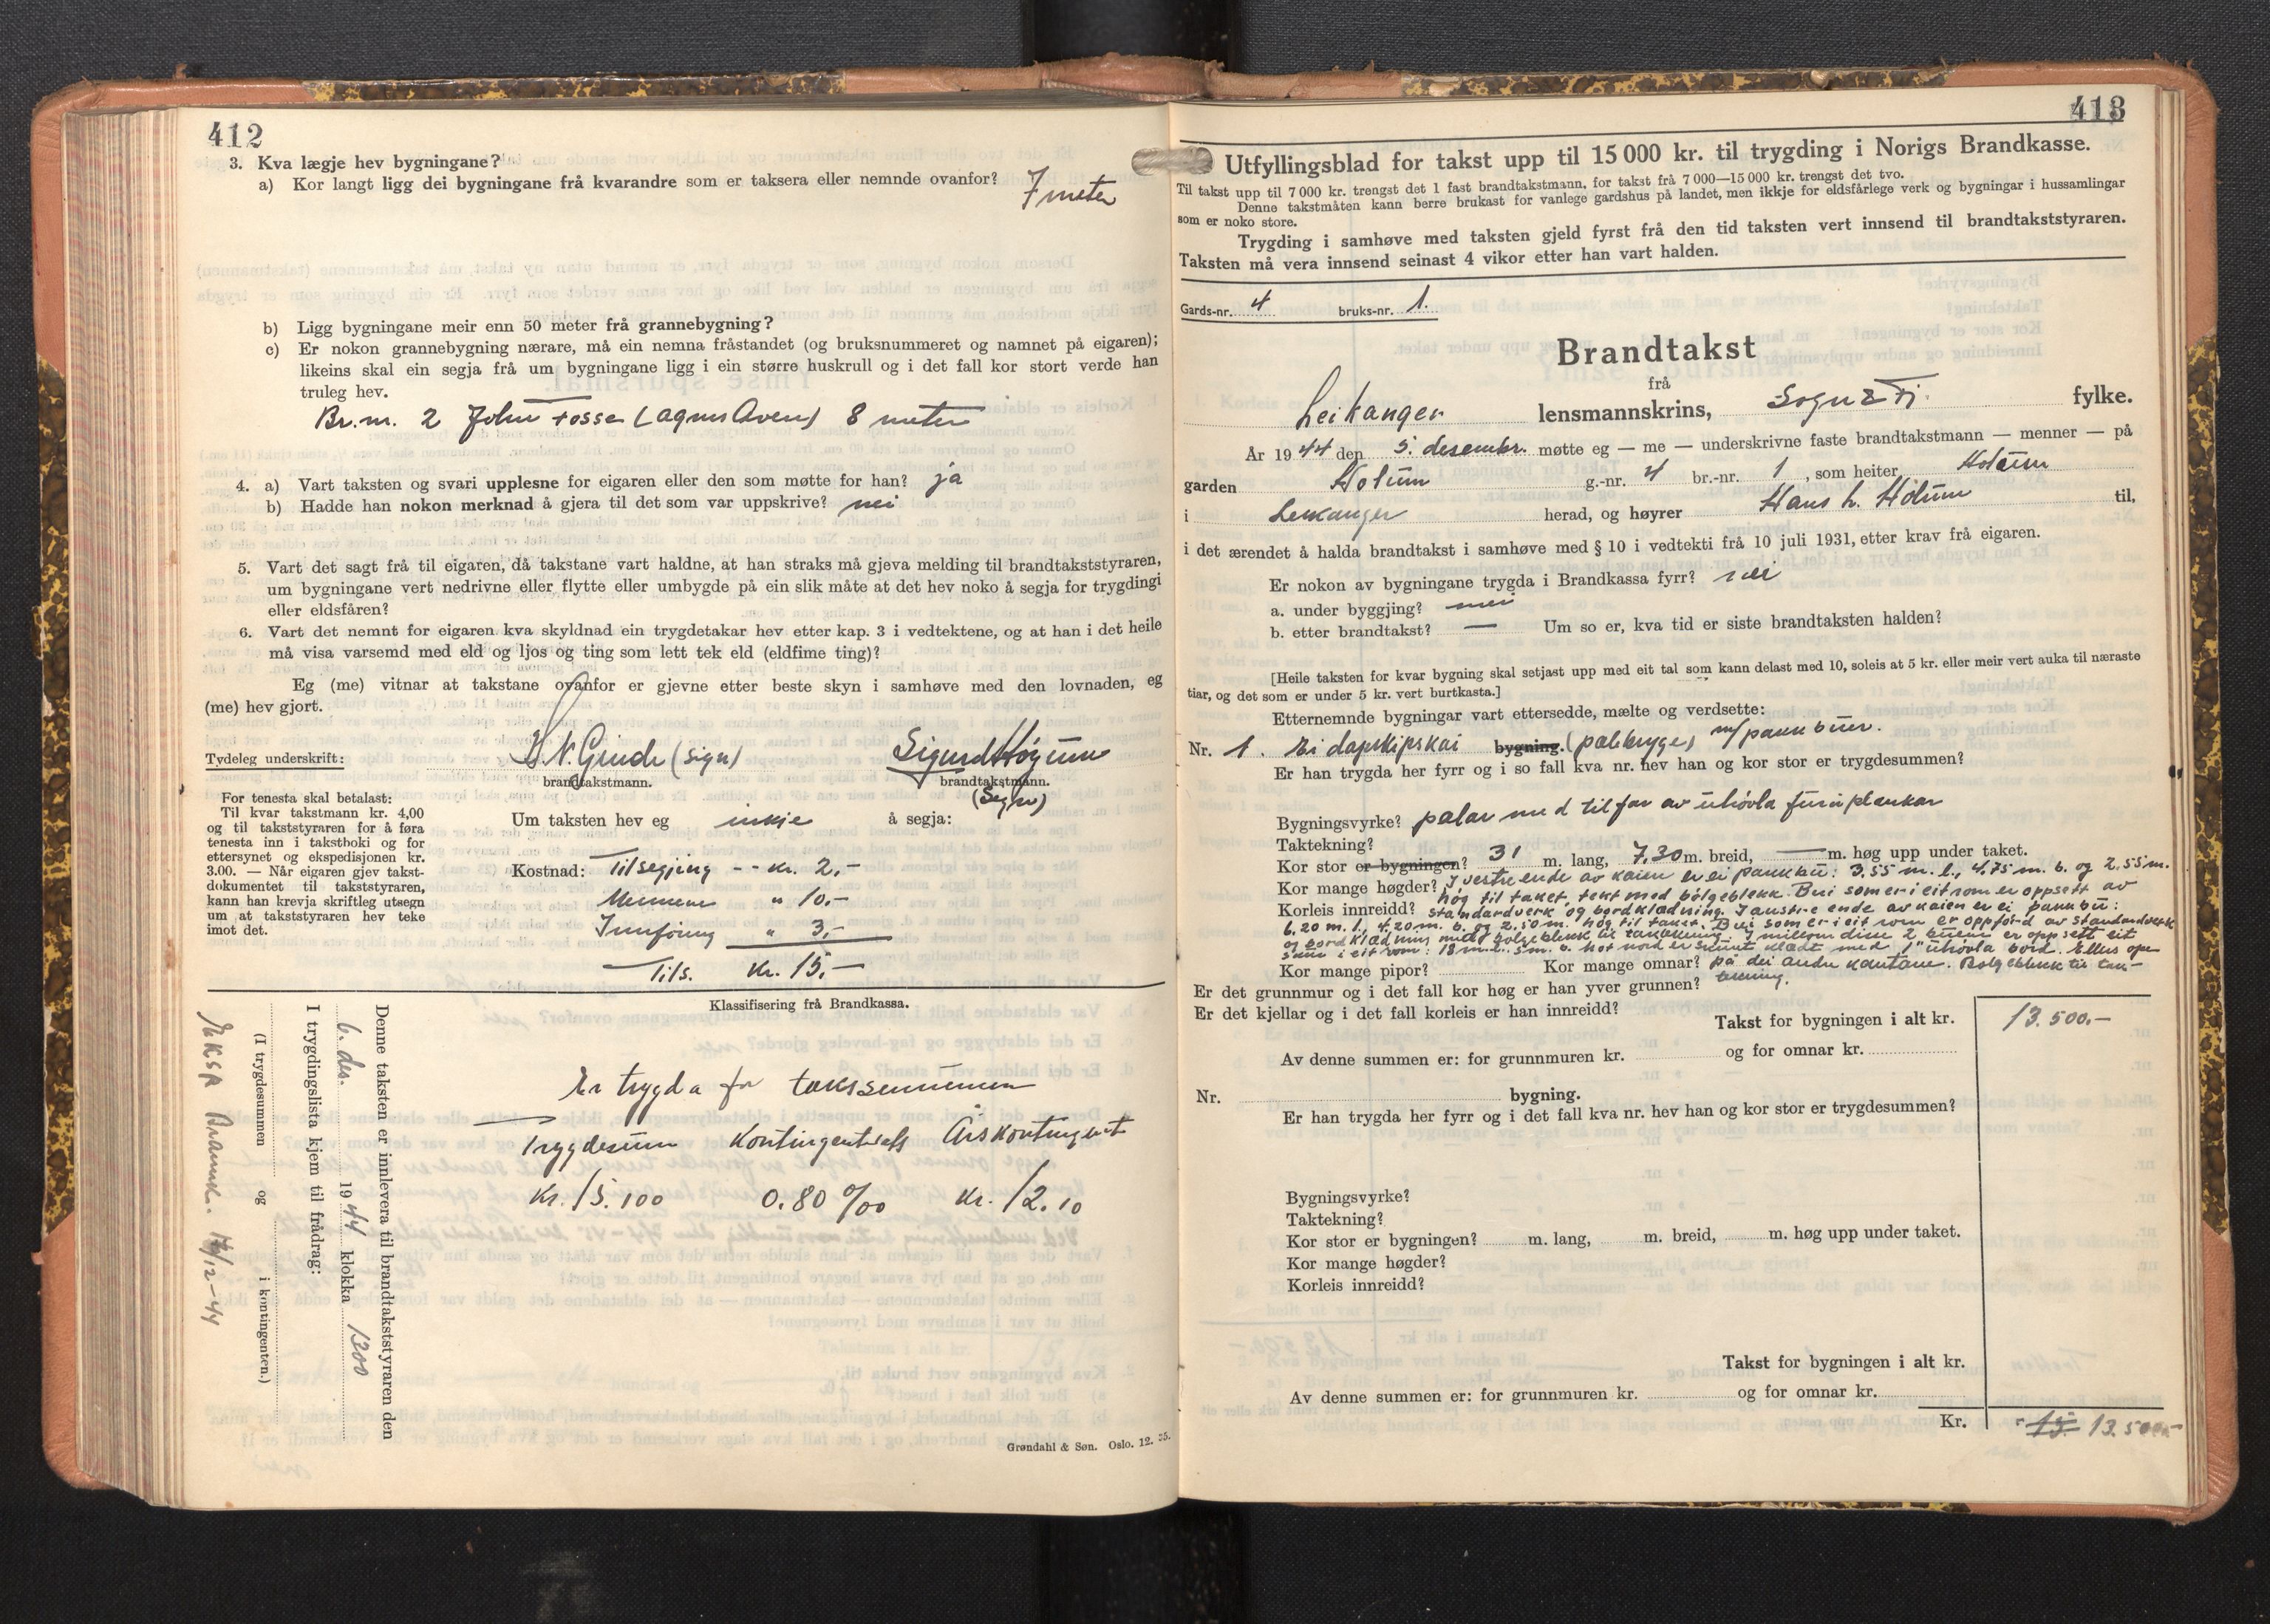 412
3. Kva lægje hev bygningane?
a) Kor langt ligg dei bygningane frå kvarandre som er taksera eller nemnde ovanfor?
7 meter
b) Ligg bygningane meir enn 50 meter frå grannebygning?
c) Er nokon grannebygning nærare, må ein nemna fråstandet (og bruksnummeret og namnet på eigaren);
likeins skal ein segja frå um bygningane ligg i ein større huskrull og i det fall kor stort verde han
truleg hev.
Br. nr. 2 John Fosse 8 meter
4. a) Vart taksten og svari upplesne for eigaren eller den som møtte for han? ja
b) Hadde han nokon merknad å gjera til det som var uppskrive? nei
5. Vart det sagt frå til eigaren, då takstane vart haldne, at han straks må gjeva melding til brandtakststyraren,
um bygningane vert nedrivne eller flytte eller umbygde på ein slik måte at det hev noko å segja for trygdingi
eller eldsfåren?
6. Vart det nemnt for eigaren kva skyldnad ein trygdetakar hev etter kap. 3 i vedtektene, og at han i det heile
må visa varsemd med eld og ljos og ting som lett tek eld (eldfime ting)?
Eg (me) vitnar at takstane ovanfor er gjevne etter beste skyn i samhøve med den lovnaden, eg
(me) hev gjort.
Tydeleg underskrift: H. N. Grinde (sign) Sigurd Høgum
brandtakstmann. brandtakstmann.
(Sign)
For tenesta skal betalast:
Til kvar takstmann kr. 4,00
og til takststyraren for å føra
tenesta inn i takstboki og for
ettersynet og ekspedisjonen kr.
3.00. — Når eigaren gjev takst-
dokumentet til takststyraren,
kann han krevja skriftleg utsegn
um at takststyraren hev teke
imot det.
Um taksten hev eg inkje å segja:
Kostnad: Tilsegjing -- kr. 2,-
Mennene " 10.-
Innføring " 3,-
Tils. Kr. 15,-
Klassifisering frå Brandkassa.
Er trygda for takssummen
Trygdesum Kontingentsats Årskontingent
Kr. 15.100 0.80 ‰ kr. 12.10
Denne taksten er innlevera til brandtakststyraren den
6. des. 1944 klokka 1300
I trygdingslista kjem til frådrag:
(I trygdesummen og i kontingenten.)
12-44
Grøndahl & Søn. Oslo. 12. 35.
413
Utfyllingsblad for takst upp til 15 000 kr. til trygding i Norigs Brandkasse.
Til takst upp til 7 000 kr. trengst det 1 fast brandtakstmann, for takst frå 7 000—15 000 kr. trengst det tvo.
Denne takstmåten kann berre brukast for vanlege gardshus på landet, men ikkje for eldsfårlege verk og bygningar i hussamlingar
som er noko store.
Trygding i samhøve med taksten gjeld fyrst frå den tid taksten vert innsend til brandtakststyraren.
Taksten må vera innsend seinast 4 vikor etter han vart halden.
Gards-nr. 4 bruks-nr. 1.
Brandtakst
frå
Leikanger lensmannskrins, Sogn & Fj. fylke.
År 1944 den 5. desembr. møtte eg — me — underskrivne faste brandtakstmann — menner — på
garden Holum g.-nr. 4 br.-nr. 1, som heiter Holum
i Leikanger herad, og høyrer Hans L. Holum til,
i det ærendet å halda brandtakst i samhøve med § 10 i vedtekti frå 10 juli 1931, etter krav frå eigaren.
Er nokon av bygningane trygda i Brandkassa fyrr? nei
a. under byggjing? nei
b. etter brandtakst? — Um so er, kva tid er siste brandtaksten halden?
[Heile taksten for kvar bygning skal setjast upp med eit tal som kann delast med 10, soleis at 5 kr. eller meir vert auka til næraste
tiar, og det som er under 5 kr. vert burtkasta.]
Etternemnde bygningar vart ettersedde, mælte og verdsette:
Nr. 1. Ei dampskipskai bygning. (pælebrygge) m/ pakkbuer.
Er han trygda her fyrr og i so fall kva nr. hev han og kor stor er trygdesummen?
Bygningsvyrke? palar med tilfar av uhøvla furuplankar
Taktekning?
Kor stor er bygningen? 31 m. lang, 7,30 m. breid, — m. høg upp under taket.
Kor mange høgder? I vestre ende av kaien er ei pakkbu: 3,55 m. l., 4.75 m. b. og 2.55 m.
høg til taket, tekt med bølgeblekk. Bui som er i eit rom er oppsett av
Korleis innreidd? standardverk og bordklædning. I austre ende av kaien er ei pakkbu:
6.20 m. l., 4.20 m. b. og 2.50 m. høg til taket. Bui som er i eit rom er oppførd av standardverk
og bordklædning med bølgeblekk til taktekning. I millom disse 2 buene er oppsett eit
skur i eit rom: 18 m. l. 5 m. b. Mot nord er skuret klædt med 1" uhøvla bord. Elles ope
Kor mange pipor? Kor mange omnar? på dei andre kantane. Bølgeblekk til tak-
tekning.
Er det grunnmur og i det fall kor høg er han yver grunnen?
Er det kjellar og i det fall korleis er han innreidd?
Takst for bygningen i alt kr. 13.500.-
Av denne summen er: for grunnmuren kr. og for omnar kr.
Nr. bygning.
Er han trygda her fyrr og i det fall kva nr. hev han og kor stor er trygdesummen?
Bygningsvyrke?
Taktekning?
Kor stor er bygningen? m. lang, m. breid, m. høg upp under taket.
Kor mange høgder?
Korleis innreidd?
Takst for bygningen i alt kr.
Av denne summen er: for grunnmuren kr. og for omnar kr.
Kr. 15 13.500.-